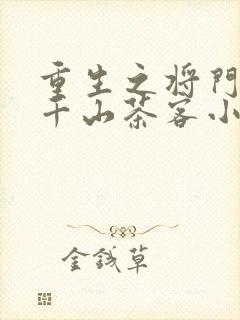 重生之将门
千山茶客小
金钱草